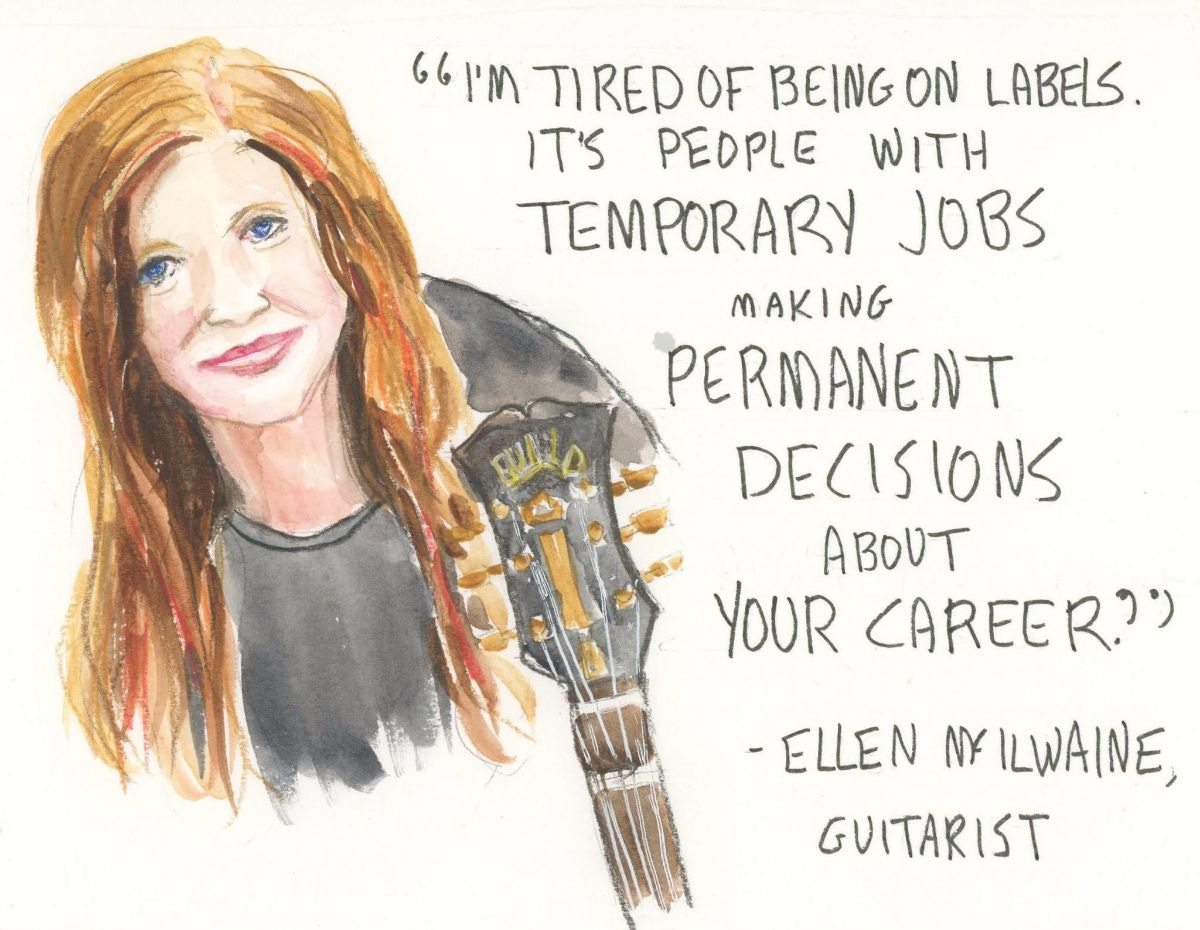 "I'M TIRED OF BEING ON LABELS.
IT'S PEOPLE WITH
TEMPORARY JOBS
MAKING
PERMANENT
DECISIONS
ABOUT
YOUR CAREER."
- ELLEN McILWAINE,
GUITARIST
GUILD